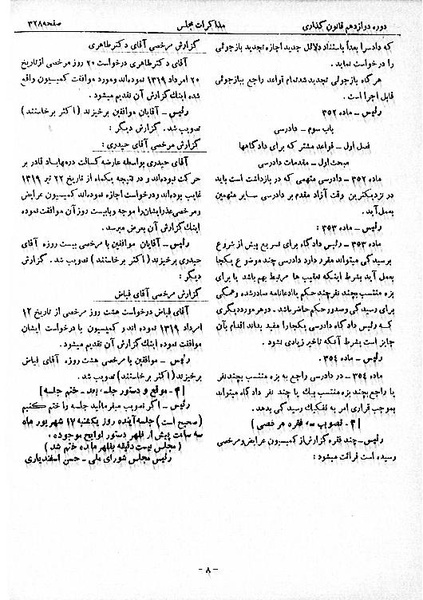 دوره دوازدهم قانون گذاری
مذاکرات مجلس
صفحه ۳۲۸۹
که دادرسرا بعداً باستناد دلائل جدید اجازه تجدید بازجوئی
را درخواست نماید.
هرگاه بازجوئی تجدید شد تمام قواعد راجع ببازجوئی
قابل اجرا است.
رئیس - ماده ۳۵۲
باب سوم - دادرسی
فصل اول - قواعد مشتر که برای دادگاهها
مبحث اول - مقدمات دادرسی
ماده ۳۵۲ - دادرسی متهمی که در بازداشت است باید
در نزدیکترین وقت آزاد مقدم بر دادرسی سایر متهمین
بعمل آید.
رئیس - ماده ۳۵۳:
ماده ۳۵۳ - رئیس دادگاه برای تسریع پیش از شروع
برسیدگی میتواند مقرر دارد دادرسی چند موضوع یکجا
بعمل آید بشرط اینکه تعقیب ها مرتبط بهم باشد یا برای
بزه منتسب بچند نفر چند حکم یا ادعانامه صادر شده و همگی
برای رسیدگی و صدور حکم حاضر باشد. در هر مورد دیگری
که رئیس دادگاه دادرسی یکجا را مفید بداند اقدام بآن
جایز است بشرط آنکه تاخیر زیادی نشود.
رئیس - ماده ۳۵۴:
ماده ۳۵۴ - در دادرسی راجع به بزه منتسب بچند نفر
یا راجع بچند بزه منتسب بیك یا چند نفر دادگاه میتواند
بموجب قراری امر به تفکیك رسیدگی بدهد.
[۳ - تصویب سه فقره مرخصی]
رئیس - چند فقره گزارش از کمیسیون عرایض و مرخصی
رسیده است قرائت میشود:
گزارش مرخصی آقای دکتر طاهری
آقای دکتر طاهری درخواست ۲۰ روز مرخصی از تاریخ
۲۰ امرداد ۱۳۱۹ نموده‌اند و مورد موافقت کمیسیون واقع
شده اینك گزارش آن تقدیم میشود.
رئیس - آقایان موافقین برخیزند (اکثر برخاستند)
تصویب شد. گزارش دیگر:
گزارش مرخصی آقای حیدری:
آقای حیدری بواسطه عارضه کسالت در مهاباد قادر بر
حرکت نبوده‌اند و در نتیجه یکماه از تاریخ ۲۲ تیر ۱۳۱۹
غایب بوده‌اند و درخواست اجازه نموده‌اند کمیسیون عرایض
و مرخصی عذر ایشان را موجه و با بیست روز آن موافقت نموده
اینك گزارش آن بعرض میرسد.
رئیس - آقایان موافقین با مرخصی بیست روزه آقای
حیدری برخیزند (اکثر برخاستند) تصویب شد. گزارش
دیگر:
گزارش مرخصی آقای فیاض
آقای فیاض درخواست هشت روز مرخصی از تاریخ ۱۲
امرداد ۱۳۱۹ نموده اند و کمیسیون با درخواست ایشان
موافقت نموده اینك گزارش آن تقدیم میشود.
رئیس - موافقین با مرخصی هشت روزه آقای فیاض
برخیزند (اکثر برخاستند) تصویب شد.
[۴ - موقع و دستور جلسه بعد - ختم جلسه]
رئیس - اگر تصویب میفرمائید جلسه را ختم کنیم
(صحیح است) جلسه آینده روز یکشنبه ۱۷ شهریور ماه
سه ساعت پیش از ظهر دستور لوایح موجوده.
(مجلس بیست دقیقه بظهر مانده ختم شد)
رئیس مجلس شورای ملی - حسن اسفندیاری
- ۸ -